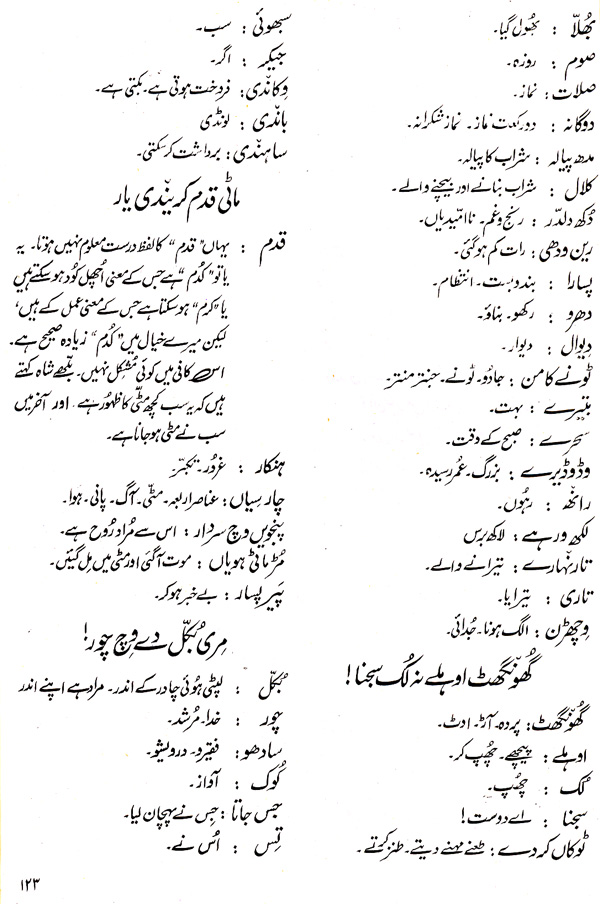 بھُلّا : بھُول گیا۔
صوم : روزہ۔
صلات : نماز۔
دوگانہ : دو رکعت نماز۔ نماز شکرانہ۔
مدھ پیالہ : شراب کا پیالہ۔
کلال : شراب بنانے اور بیچنے والے۔
دُکھ دلدّر : رنج و غم۔ نا امیدیاں۔
رین ودھی : رات کم ہو گئی۔
پسارا : بندوبست۔ انتظام۔
دھرو : رکھو۔ بناؤ۔
دِیوال : دیوار۔
ٹونے کامن : جادُو۔ ٹونے۔ جنتر منتر۔
بتیرے : بہت۔
سحرے : صبح کے وقت۔
وڈ وڈیرے : بزرگ۔ عُمر رسیدہ۔
رانھ : رہُوں۔
لکھ ورہے : لاکھ برس
تارنہارے : تیرانے والے۔
تاری : تیرایا۔
وچھڑن : الگ ہونا۔ جُدائی۔
گھُونگھٹ اوہلے نہ لُک سجنا!
گھُونگھٹ : پردہ۔ آڑ۔ اوٹ۔
اوہلے : پیچھے۔ چھُپ کر۔
لُک : چھُپ۔
سجنا : اے دوست!
ٹوکاں کردے : طعنے مہنے دیتے۔ طنز کرتے۔
سبھوئی : سب۔
جیکر : اگر۔
وِکاندی : فروخت ہوتی ہے۔ بکتی ہے۔
باندی : لونڈی
ساہندی : برداشت کر سکتی۔
ماٹی قدم کریندی یار
قدم : یہاں ”قدم“ کا لفظ درست معلوم نہیں ہوتا۔ یہ
یا تو ”کُدم“ ہے جس کے معنی اُچھل کُود ہو سکتے ہیں
یا ”کرم“ ہو سکتا ہے جس کے معنی عمل کے ہیں،
لیکن میرے خیال میں ”کُدم“ زیادہ صحیح ہے۔
اس کافی میں کوئی مُشکل نہیں۔ بلّھے شاہ کہتے
ہیں کہ یہ سب کچھ مٹّی کا ظہور ہے اور آخر میں
سب نے مٹی ہو جانا ہے۔
ہنکار : غرُور۔ تکبّر۔
چار سیاں : عناصر اربعہ۔ مٹّی۔ آگ۔ پانی۔ ہوا۔
پنجویں وچ سردار : اس سے مُراد رُوح ہے۔
مُڑ ماٹی ہویاں : موت آ گئی اور مٹی میں مِل گئیں۔
پَیر پسار : بے خبر ہو کر۔
مِری بُکّل دے وِچ چور!
بُکّل : لپٹی ہُوئی چادر کے اندر۔ مراد ہے اپنے اندر
چور : خدا۔ مُرشد۔
سادھو : فقیرو۔ درویشو۔
کُوک : آواز۔
جس جاتا : جِس نے پہچان لیا۔
تِس : اُس نے۔
۱۲۳